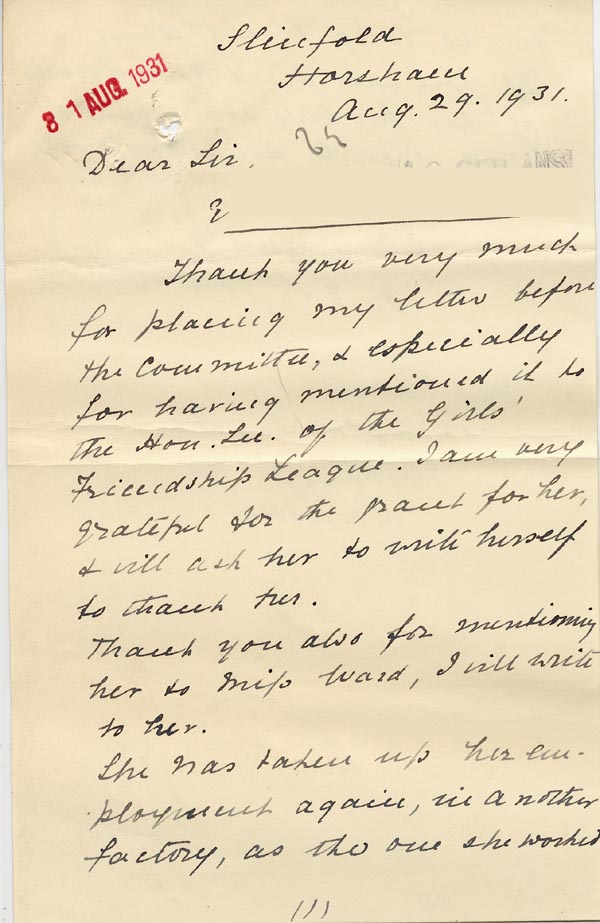 Slinfold
Horsham
Aug. 29. 1931.
31 AUG. 1931
Dear Sir,
Thank you very much
for placing my letter before
the Committee, & especially
for having mentioned it to
the Hon. Sec. of the Girls'
Friendship League. I am very
grateful for the grant for her,
& will ask her to write herself
to thank her.
Thank you also for mentioning
her to Miss Ward, I will write
to her.
She has taken up her em-
ployment again, in another
factory, as the one she worked